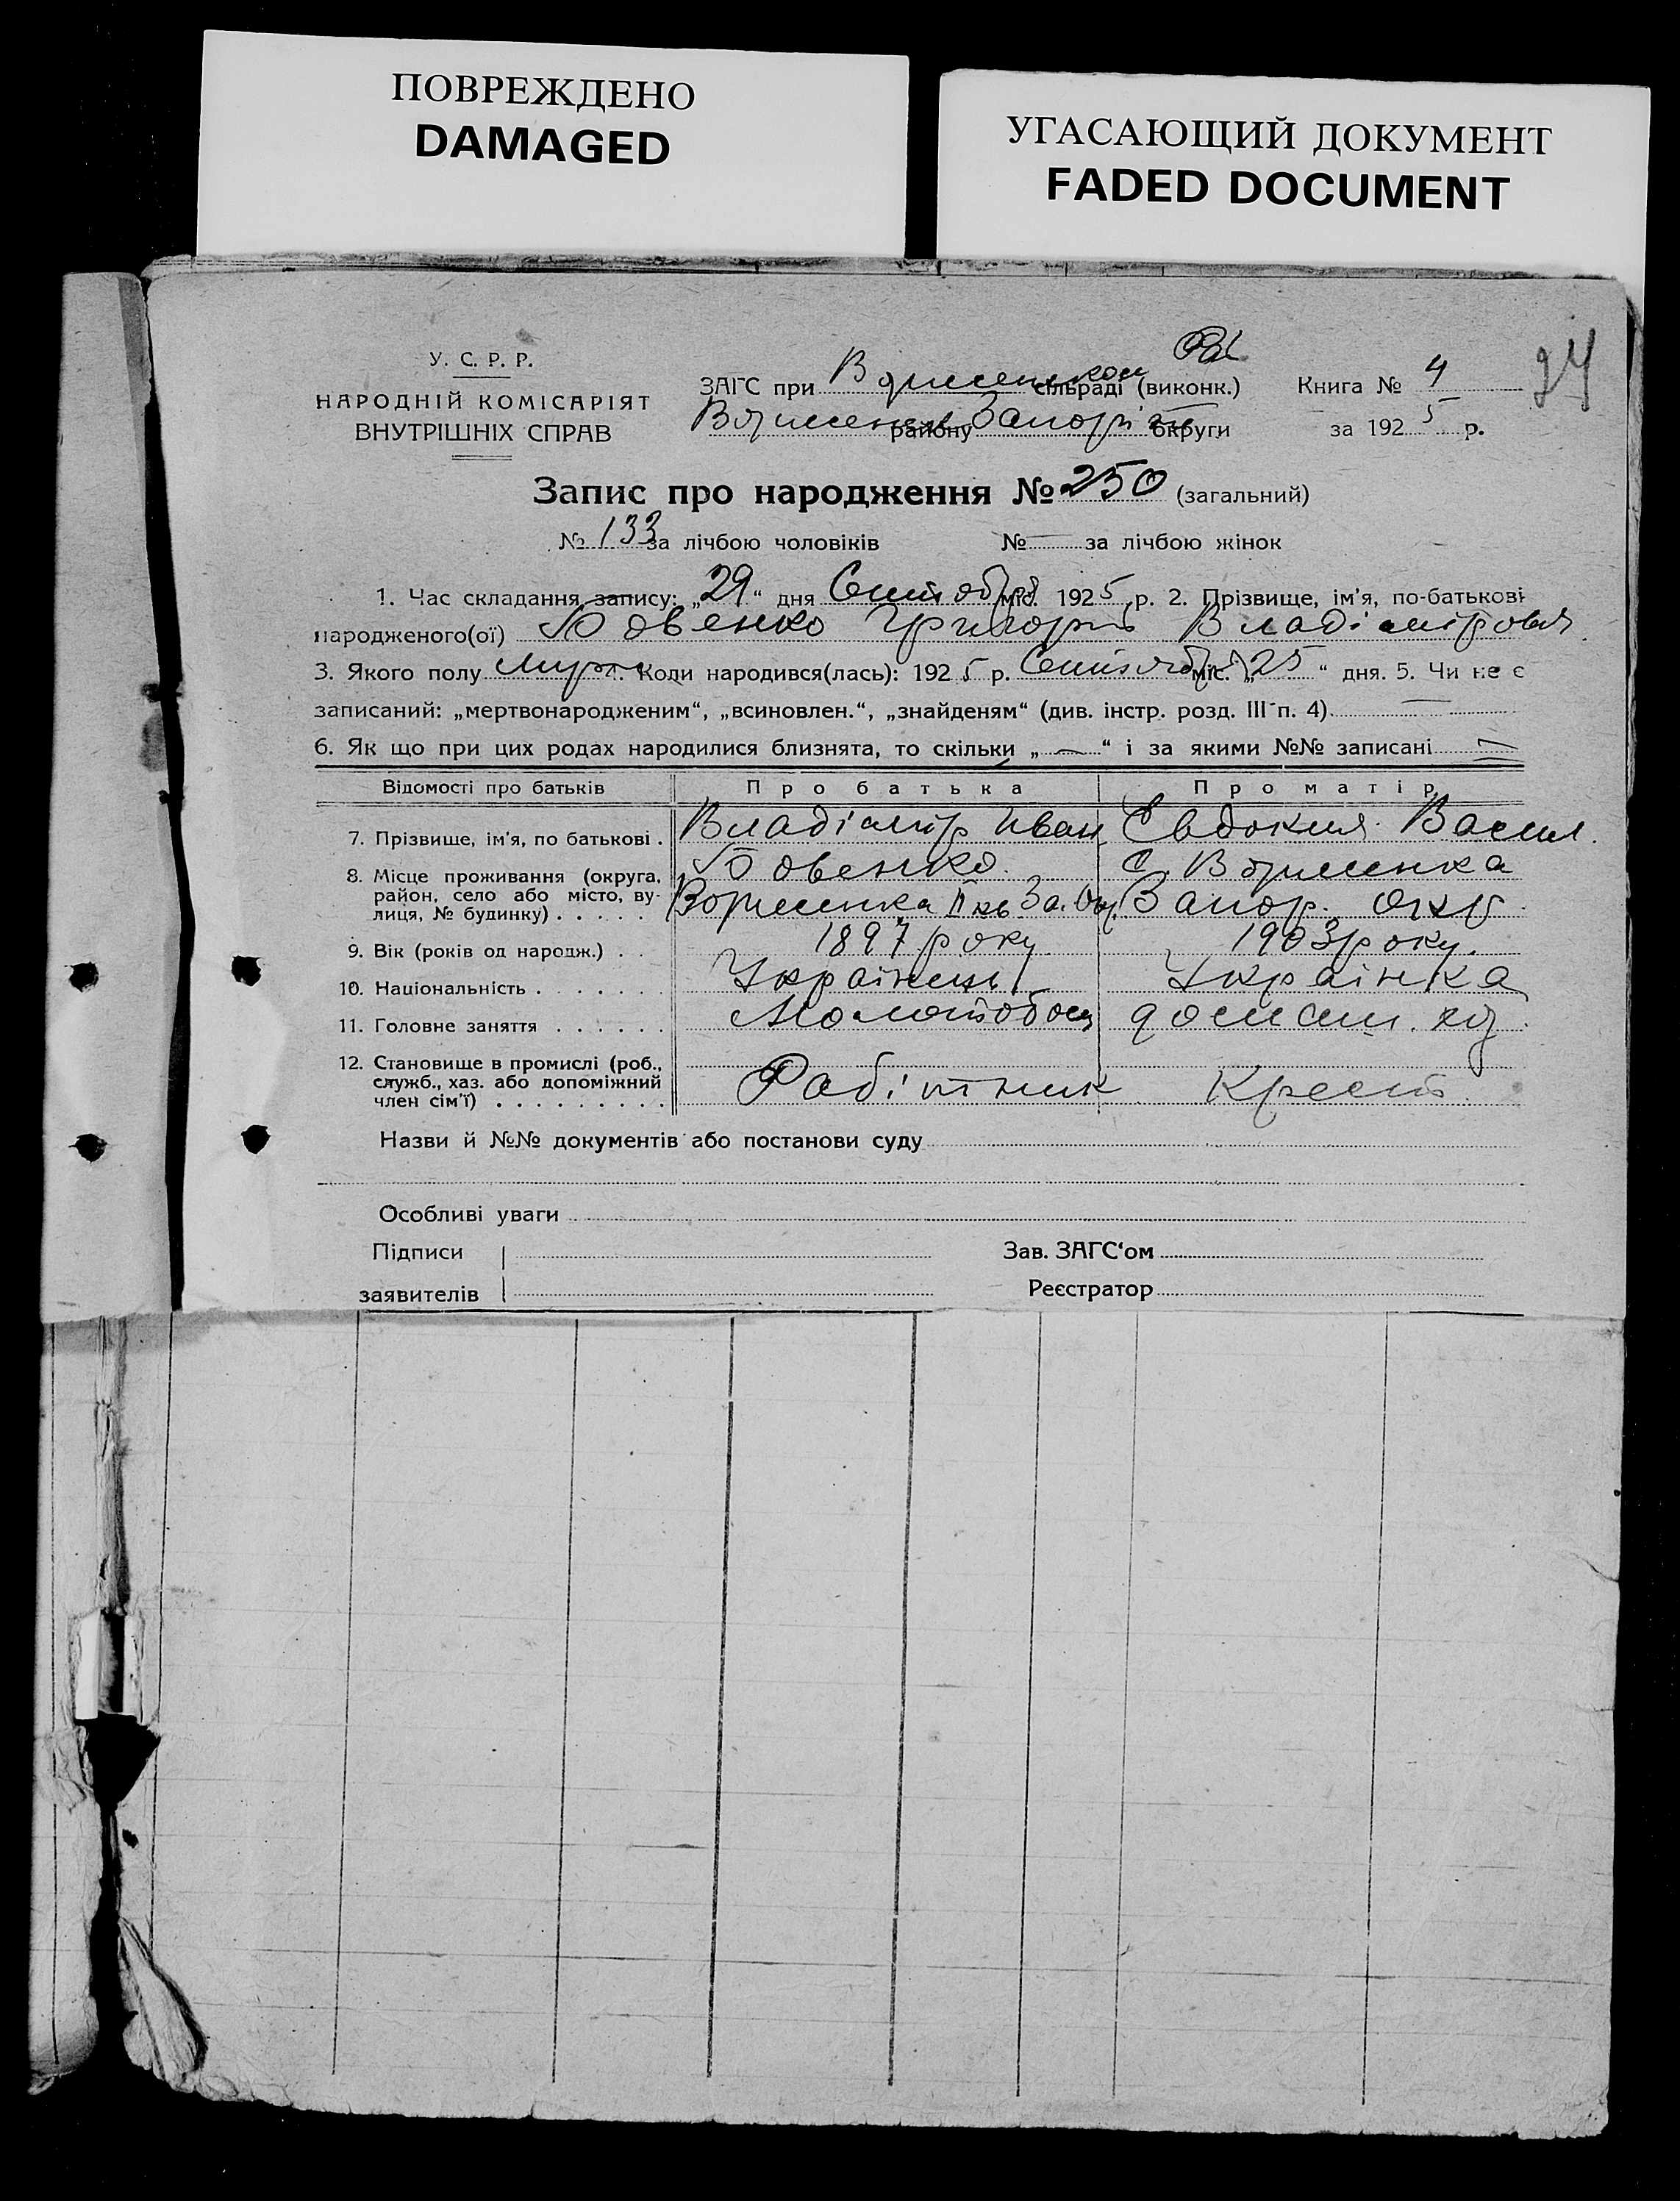 ПОВРЕЖДЕНО
DAMAGED
УГАСАЮЩИЙ ДОКУМЕНТ
FADED DOCUMENT
У. С. Р. Р.
НАРОДНІЙ КОМІСАРІЯТ
ВНУТРІШНІХ СПРАВ
ЗАГС при сільраді (виконк.)
району Запоріж округи
Книга № 4
за 1925 р.
24
Запис про народження № 250 (загальний)
№ 133 за лічбою чоловіків № — за лічбою жінок
1. Час складання запису: „29“ дня Сентября міс. 1925 р. 2. Прізвище, ім'я, по-батькові
народженого(ої) Григорій Владіміров
3. Якого полу Муж. Коли народився(лась): 1925 р. Сентября міс. „25“ дня. 5. Чи не є
записаний: „мертвонародженим“, „всиновлен.“, „знайденям“ (див. інстр. розд. III п. 4). —
6. Як що при цих родах народилися близнята, то скільки „—“ і за якими №№ записані —
Відомості про батьків Про батька Про матір
7. Прізвище, ім'я, по батькові . Владімір Иван Евдокия Васил.
8. Місце проживання (округа, район, село або місто, вулиця, № будинку) . . . . . с. Запор. Окр
9. Вік (років од народж.) . . 1897 року 1903 року.
10. Національність . . . . . . . Українець Українка
11. Головне заняття . . . . . . Молотобоец домаш. хоз.
12. Становище в промислі (роб., служб., хаз. або допоміжний член сім'ї) . . . . . . . . . Рабітник Крест.
Назви й №№ документів або постанови суду
Особливі уваги
Підписи
заявителів
Зав. ЗАГС'ом
Реєстратор